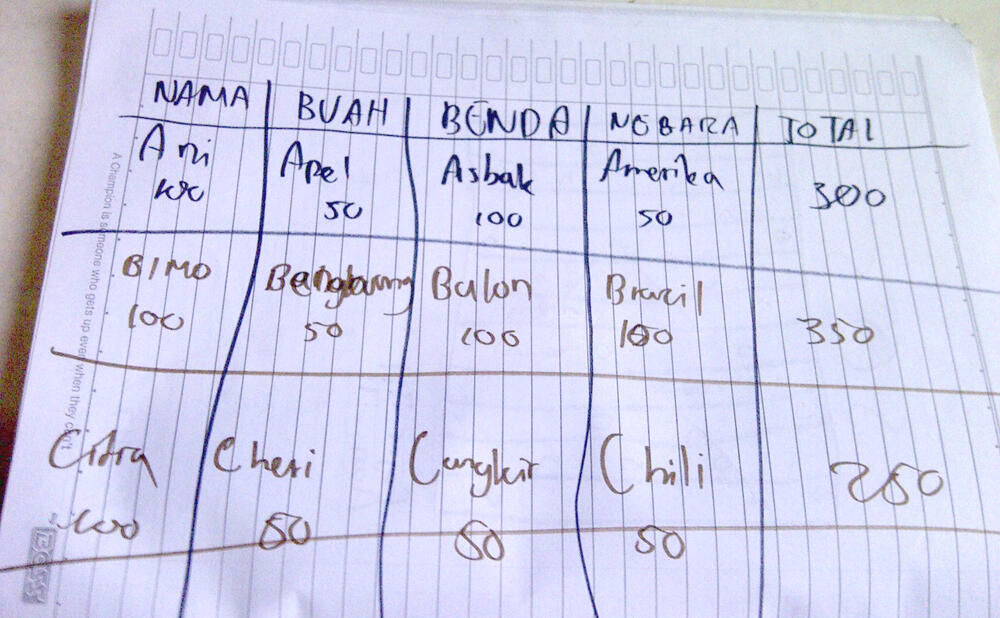 NAMA BUAH BENDA NEGARA TOTAL
Ani Apel Asbak Amerika
100 50 100 50 300
BIMO Bengkuang Balon Brazil
100 50 100 100 350
Citra Cheri Cangkir Chili
100 50 50 50 250
A Champion is someone who gets up even when they can't
BOSS